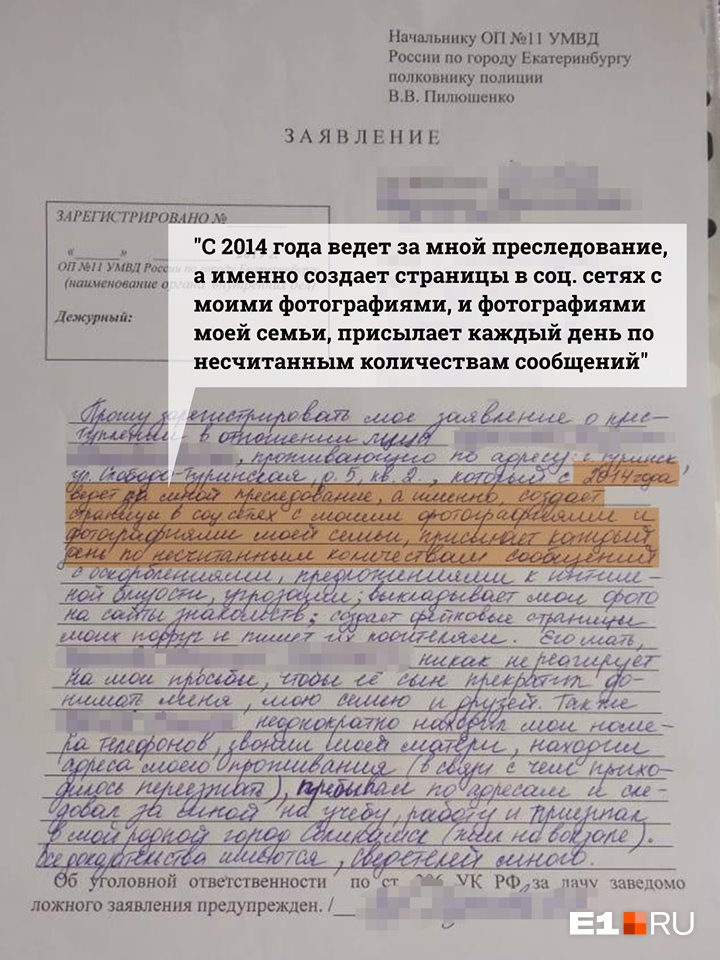 Начальнику ОП №11 УМВД
России по городу Екатеринбургу
полковнику полиции
В.В. Пилюшенко
ЗАЯВЛЕНИЕ
ЗАРЕГИСТРИРОВАНО №
« »
ОП №11 УМВД России
(наименование органа внутренних дел)
Дежурный:
"С 2014 года ведет за мной преследование,
а именно создает страницы в соц. сетях с
моими фотографиями, и фотографиями
моей семьи, присылает каждый день по
несчитанным количествам сообщений"
Прошу зарегистрировать мое заявление о прес-
туплении в отношении лица
, проживающую по адресу: г. Туринск,
ул. Слободо-Туринская, д. 5, кв. 2, который с 2014 года
ведет за мной преследование, а именно, создает
страницы в соц сетях с моими фотографиями и
фотографиями моей семьи, присылает каждый
день по несчитанным количествам сообщений
с оскорблениями, предложениями к интим-
ной близости, угрозами; выкладывает мои фото
на сайты знакомств; создает фейковые страницы
моих подруг и пишет их родителям. Его мать,
никак не реагирует
на мои просьбы, чтобы её сын прекратил до-
нимать меня, мою семью и друзей. Также
неоднократно находил мои номе-
ра телефонов, звонил моей матери, находил
адреса моего проживания (в связи с чем прихо-
дилось переезжать), пребывал по адресам и сле-
довал за мной на учебу, работу и приезжал
в мой родной город Соликамск (жил на вокзале).
Все доказательства имеются, свидетелей много.
Об уголовной ответственности по ст. 306 УК РФ за дачу заведомо
ложного заявления предупрежден. /
E1.RU